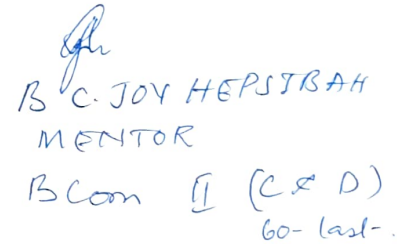 B C. JOY HEPSIBAH
MENTOR
BCom II (C & D)
60- last-.